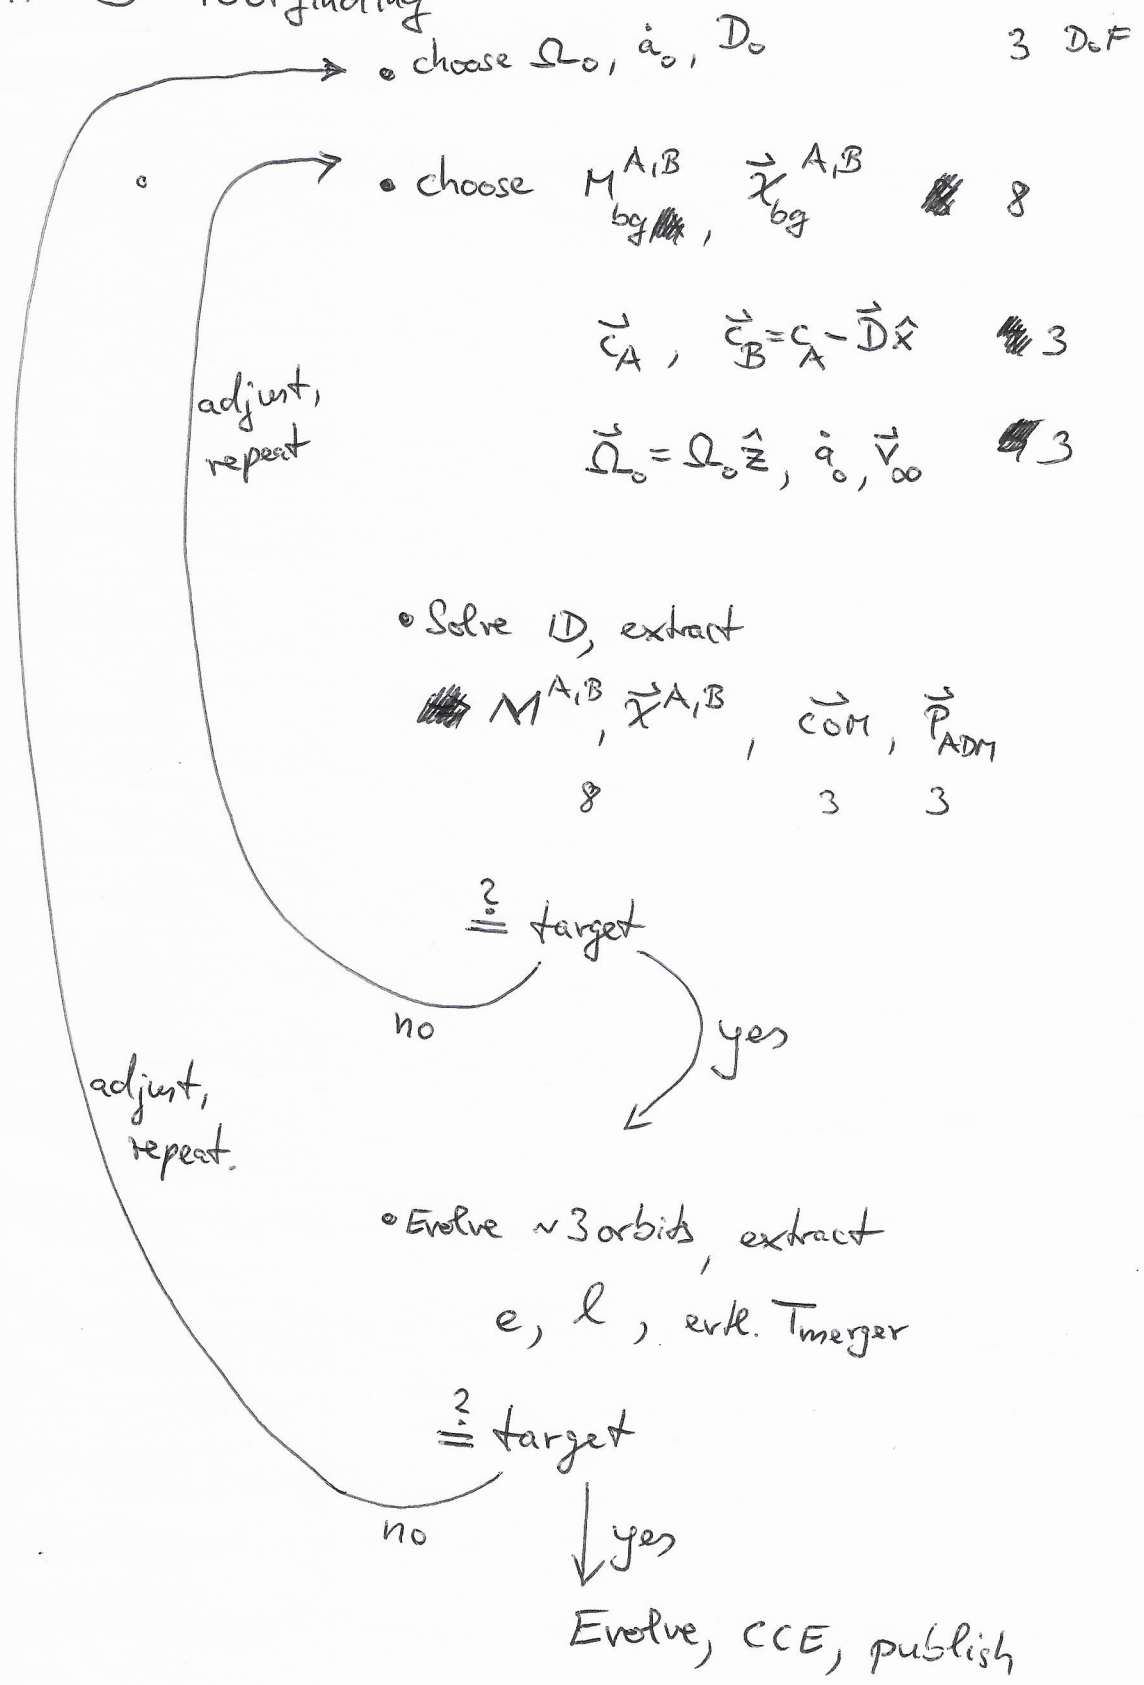 rootfinding
• choose Ω₀, ȧ₀, D₀ 3 DoF
• choose M_bg^{A,B}, χ⃗_bg^{A,B} 8
c⃗_A, c⃗_B = c_A - D⃗x̂ 3
adjust,
repeat
Ω⃗₀ = Ω₀ẑ, ȧ₀, v⃗_∞ 3
• Solve ID, extract
M^{A,B}, χ⃗^{A,B}, COM⃗, P⃗_ADM
8 3 3
≟ target
no
yes
adjust,
repeat.
• Evolve ~3 orbits, extract
e, l, evtl. Tmerger
≟ target
no
yes
Evolve, CCE, publish